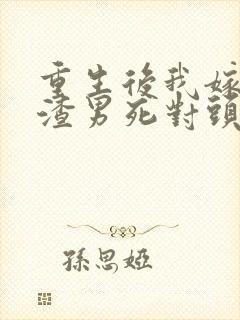 重生後我嫁
渣男死對頭
孫思婭